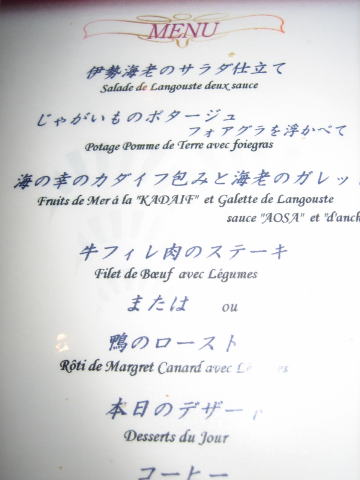 MENU
伊勢海老のサラダ仕立て
Salade de Langouste deux sauce
じゃがいものポタージュ
フォアグラを浮かべて
Potage Pomme de Terre avec foiegras
海の幸のカダイフ包みと海老のガレット
Fruits de Mer á la "KADAIF" et Galette de Langouste
sauce "AOSA" et "d'anch
牛フィレ肉のステーキ
Filet de Bœuf avec Légumes
または ou
鴨のロースト
Rôti de Margret Canard avec
本日のデザート
Desserts du Jour
コーヒー